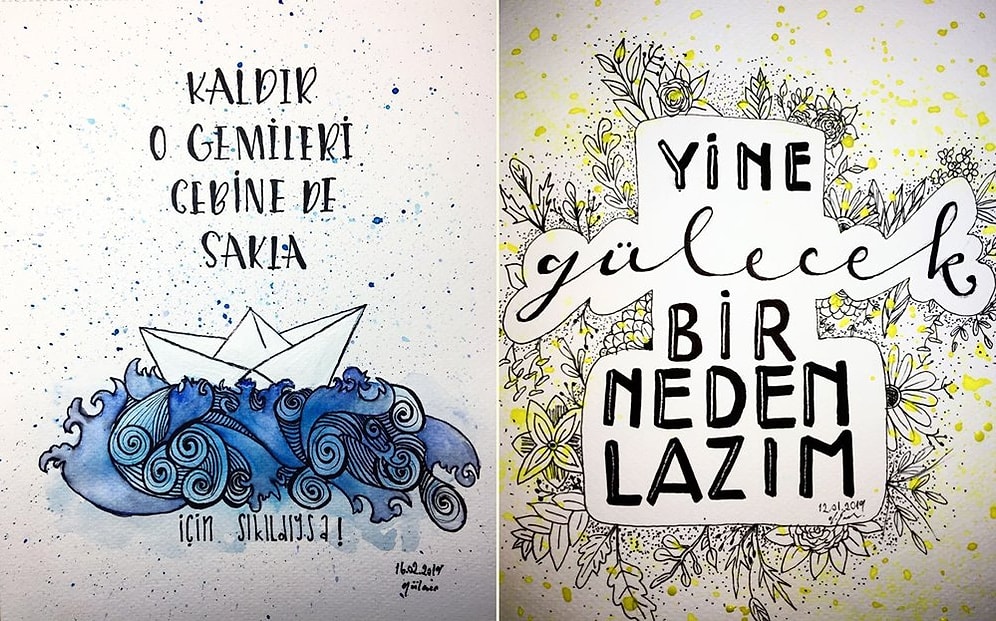 KALDIR
O GEMİLERİ
CEBİNE DE
SAKLA
İÇİN SIKILDIYSA!
16.02.2019
YİNE
gülecek
BİR
NEDEN
LAZIM
12.01.2019